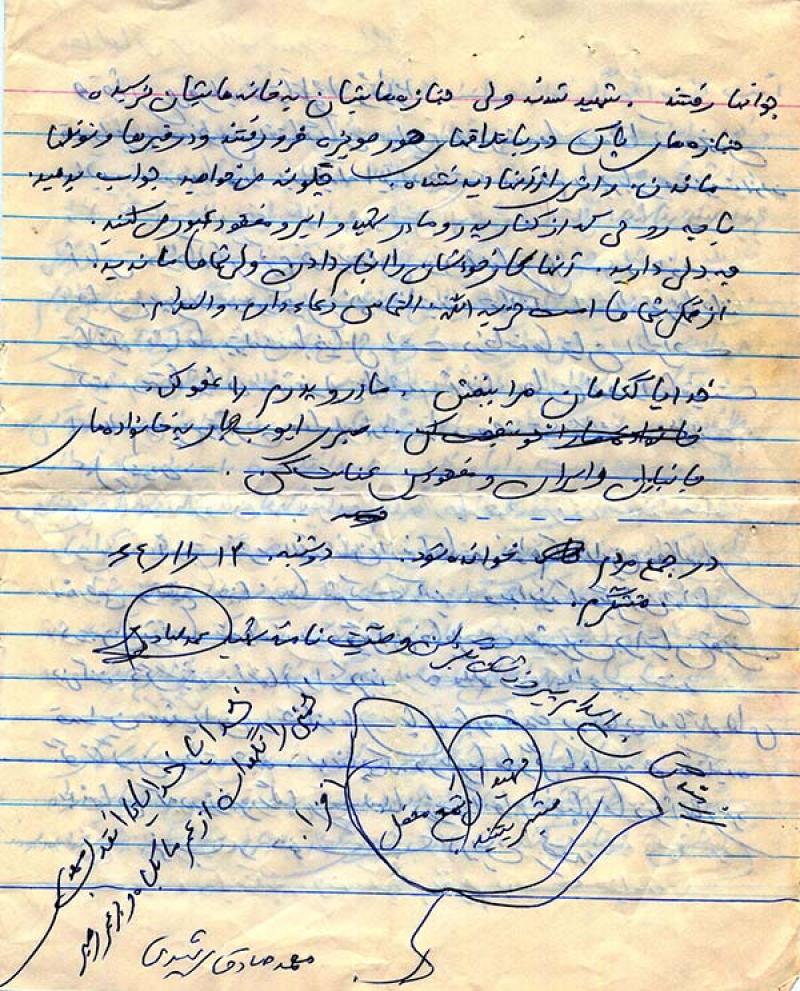 جوانها رفتند . شهید شدند ولی جنازه‌هایشان به خانه‌هایشان نرسیده
جنازه‌های پاک در باتلاقهای هور هویزه فرو رفتند و در
ماندن. و اثری از آنها دیده نشده. چگونه می‌خواهید جواب بدهید.
با چه روحی که از کنار پدر و مادر شهید و اسیر و مفقود عبور می‌کنید.
چه دلی دارید. آنها کار خودشان را انجام دادن ولی شماها ماندید.
از شما امت حزب الله. التماس دعاء دارم. والسلام.
خدایا گناهان مرا ببخش . مادر و پدرم را عفو کن.
صبری ایوب به خانواده‌های
جانبازان و اسیران و مفقودین عنایت کن.
در جمع مردم خوانده شود. دوشنبه. ۱۲ / ۱۱ / ۶۴
متشکرم.
وصیت نامه شهید محمد صادق
اسلام پیروز است
خدایا خدایا تا انقلاب مهدی
خمینی را نگهدار
از عمر ما بکاه و بر عمر رهبر
افزا
شهید
شمع محفل
بشریتند
محمد صادق رشیدی